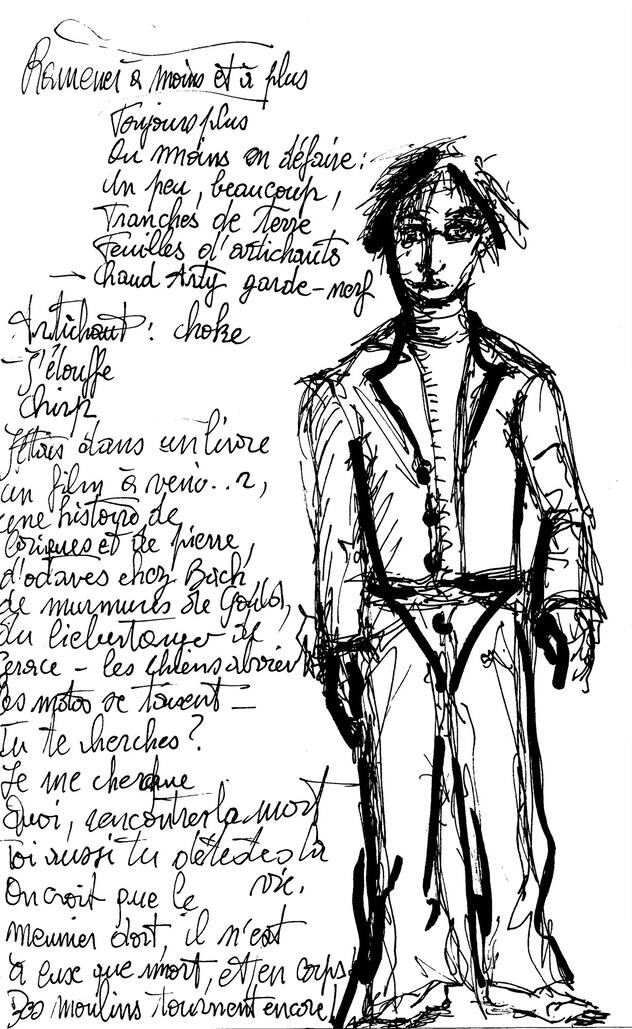 Ramener à moins et à plus
Toujours plus
Ou moins on défaire :
Un peu, beaucoup,
Tranches de terre
Feuilles d'artichauts
— Chaud Arty garde-nerf
Artichaut : choke
– J'étouffe
Chirp
J'étais dans un livre
un film à veni..r,
une histoire de
et de pierre,
d'octaves chez Bach
de murmures de
du liebertango de
– les chiens aboient
les motos se taisent –
Tu te cherches ?
Je me cherche
Quoi, rencontrer la mort
Toi aussi tu détestes la
vie.
On croit que le
meunier dort, il n'est
à eux que mort, et en corps
Des moulins tournent encore !